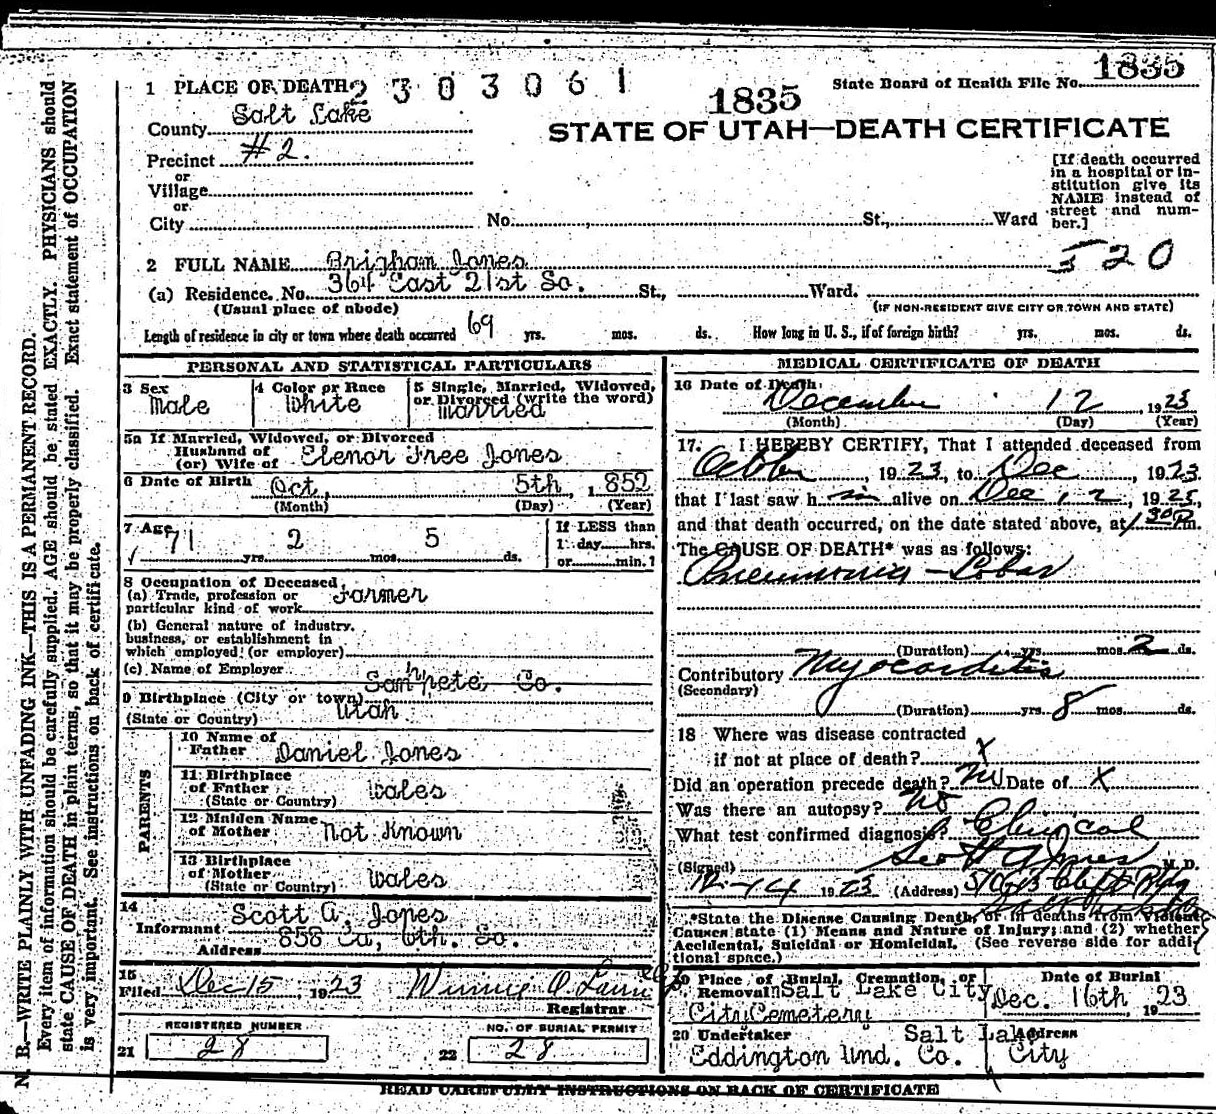 1835
State Board of Health File No.
1 PLACE OF DEATH 2303061
1835
County Salt Lake
STATE OF UTAH—DEATH CERTIFICATE
Precinct #2.
or
Village
or
City No. St., Ward
[If death occurred
in a hospital or in-
stitution give its
NAME instead of
street and num-
ber.]
2 FULL NAME Brigham Jones
520
(a) Residence. No. 364 East 21st So. St., Ward.
(Usual place of abode) (IF NON-RESIDENT GIVE CITY OR TOWN AND STATE)
Length of residence in city or town where death occurred 69 yrs. mos. ds. How long in U. S., if of foreign birth? yrs. mos. ds.
PERSONAL AND STATISTICAL PARTICULARS
3 Sex
Male
4 Color or Race
White
5 Single, Married, Widowed,
or Divorced (write the word)
Married
5a If Married, Widowed, or Divorced
Husband of
(or) Wife of Elenor Free Jones
6 Date of Birth Oct, 5th, 1852
(Month) (Day) (Year)
7 Age
71 yrs. 2 mos. 5 ds.
If LESS than
1 day hrs.
or min.?
8 Occupation of Deceased
(a) Trade, profession or
particular kind of work Farmer
(b) General nature of industry,
business, or establishment in
which employed (or employer)
(c) Name of Employer
9 Birthplace (City or town) Sanpete, Co.
(State or Country) Utah
PARENTS
10 Name of
Father Daniel Jones
11 Birthplace
of Father Wales
(State or Country)
12 Maiden Name
of Mother Not Known
13 Birthplace
of Mother Wales
(State or Country)
14
Informant Scott A. Jones
Address 858 Ea, 6th. So.
15
Filed Dec 15, 1923 Winnie O.
Registrar
21 REGISTERED NUMBER
28
22 NO. OF BURIAL PERMIT
28
MEDICAL CERTIFICATE OF DEATH
16 Date of Death
December 12, 1923
(Month) (Day) (Year)
17. I HEREBY CERTIFY, That I attended deceased from
1923, to Dec 1923
that I last saw him alive on Dec 12, 1923,
and that death occurred, on the date stated above, at 1 30 P.m.
The CAUSE OF DEATH* was as follows:
Pneumonia - Lobar
(Duration) yrs. mos. 2 ds.
Contributory Myocarditis
(Secondary)
(Duration) yrs. 8 mos. ds.
18 Where was disease contracted
if not at place of death? X
Did an operation precede death? No Date of X
Was there an autopsy? No
What test confirmed diagnosis? Clinical
(Signed) Scott A Jones M. D.
12-14 1923 (Address) Clift Bldg
*State the Disease Causing Death, or in deaths from Violent
Causes state (1) Means and Nature of Injury; and (2) whether
Accidental, Suicidal or Homicidal. (See reverse side for addi-
tional space.)
19 Place of Burial, Cremation, or
Removal Salt Lake City
City Cemetery
Date of Burial
Dec. 16th, 1923
20 Undertaker
Eddington Und. Co.
Address
Salt Lake
City
READ CAREFULLY INSTRUCTIONS ON BACK OF CERTIFICATE
N. B.—WRITE PLAINLY WITH UNFADING INK—THIS IS A PERMANENT RECORD.
Every item of information should be carefully supplied. AGE should be stated EXACTLY. PHYSICIANS should
state CAUSE OF DEATH in plain terms, so that it may be properly classified. Exact statement of OCCUPATION
is very important. See instructions on back of certificate.